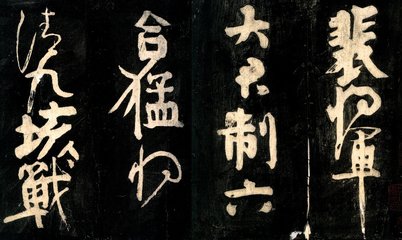 裴將軍
大君制六
合猛將
清九垓戰